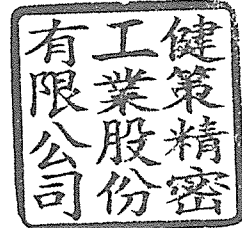 健策精密
工業股份
有限公司